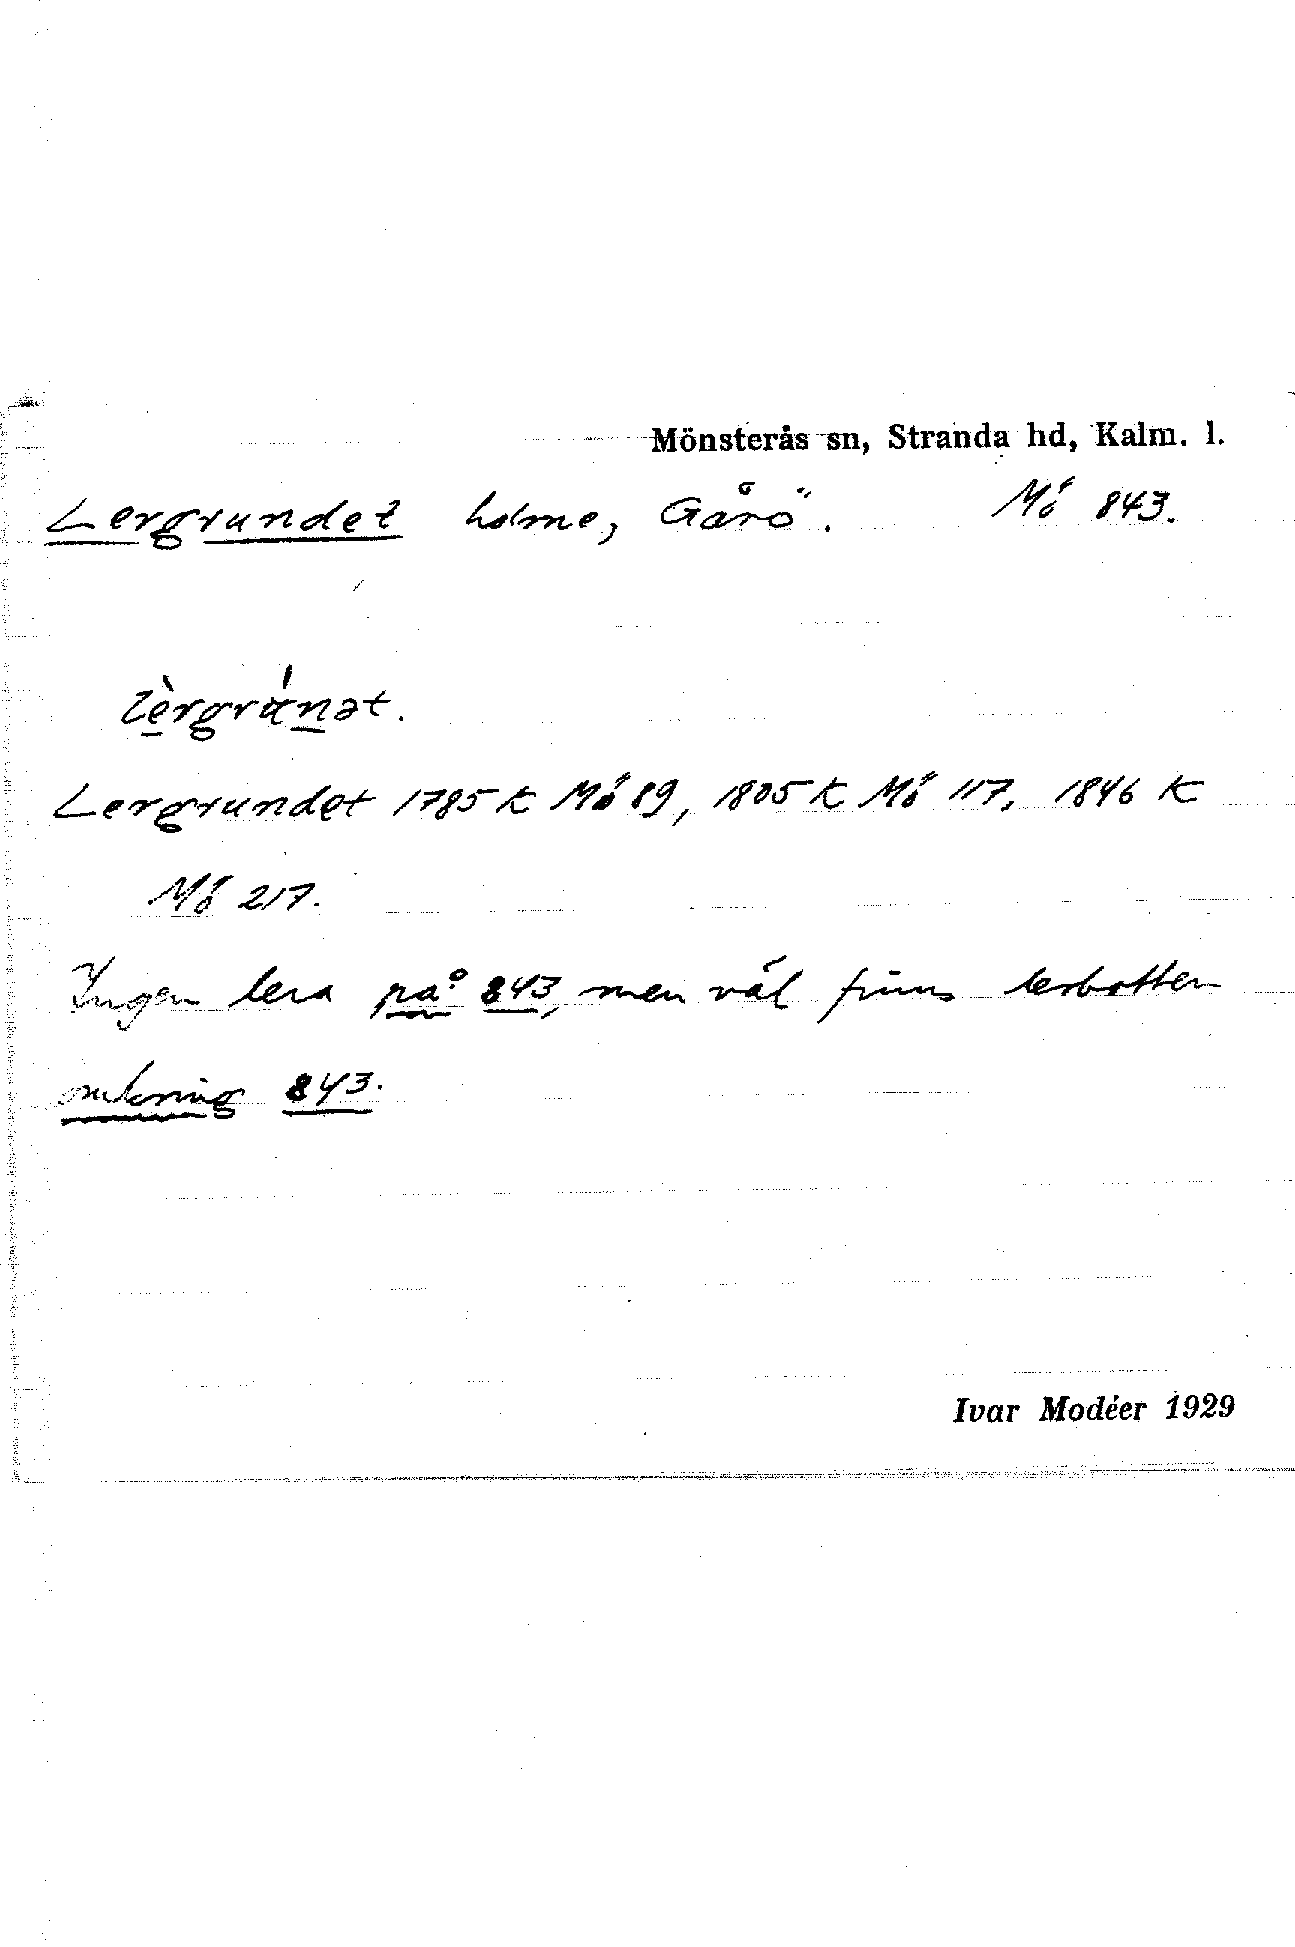 Mönsterås sn, Stranda hd, Kalm. l.
Lergrundet holme, Gårö. Mö 843.
lèrgrúnət.
Lergrundet 1785 K Mö 89, 1805 K Mö 117, 1846 K
Mö 217.
Ingen lera på 843, men väl finns lerbotten
omkring 843.
Ivar Modéer 1929